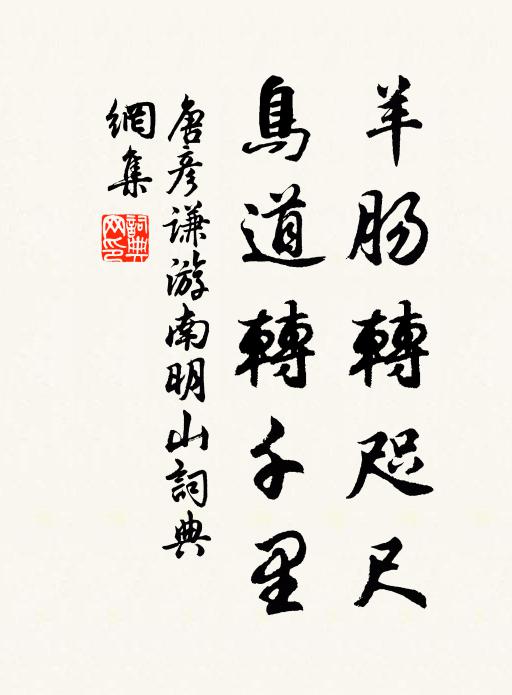 羊肠轉咫尺
鳥道轉千里
唐彦谦游南明山詞典
網集
詞典
网印